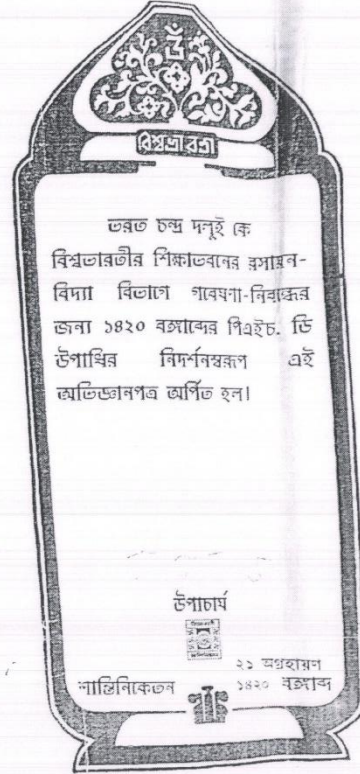 বিশ্বভারতী
ভরত চন্দ্র দলুই কে
বিশ্বভারতীর শিক্ষাভবনের রসায়ন-
বিদ্যা বিভাগে গবেষণা-নিবন্ধের
জন্য ১৪২০ বঙ্গাব্দের পিএইচ. ডি
উপাধির নিদর্শনস্বরূপ এই
অভিজ্ঞানপত্র অর্পিত হল।
উপাচার্য
২১ অগ্রহায়ণ
শান্তিনিকেতন ১৪২০ বঙ্গাব্দ